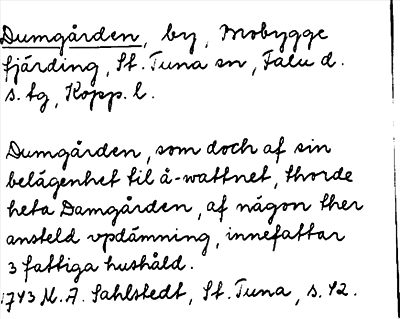 Dumgården, by, Mobygge
fjärding, St. Tuna sn, Falu d.
s. tg, Kopp. l.
Dumgården, som doch af sin
belägenhet til å-wattnet, thorde
heta Damgården, af någon ther
ansteld updämning, innefattar
3 fattiga hushåld.
1743 M. A. Sahlstedt, St. Tuna, s. 42.